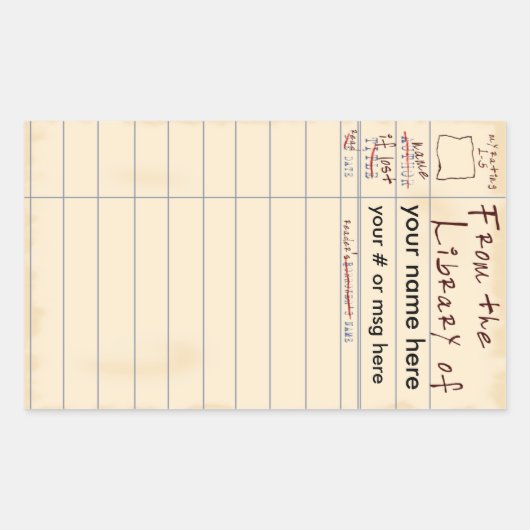 my rating
1-5
From the
Library of
name
AUTHOR
your name here
if lost
TITLE
your # or msg here
read
DATE
Reader's BORROWER'S NAME